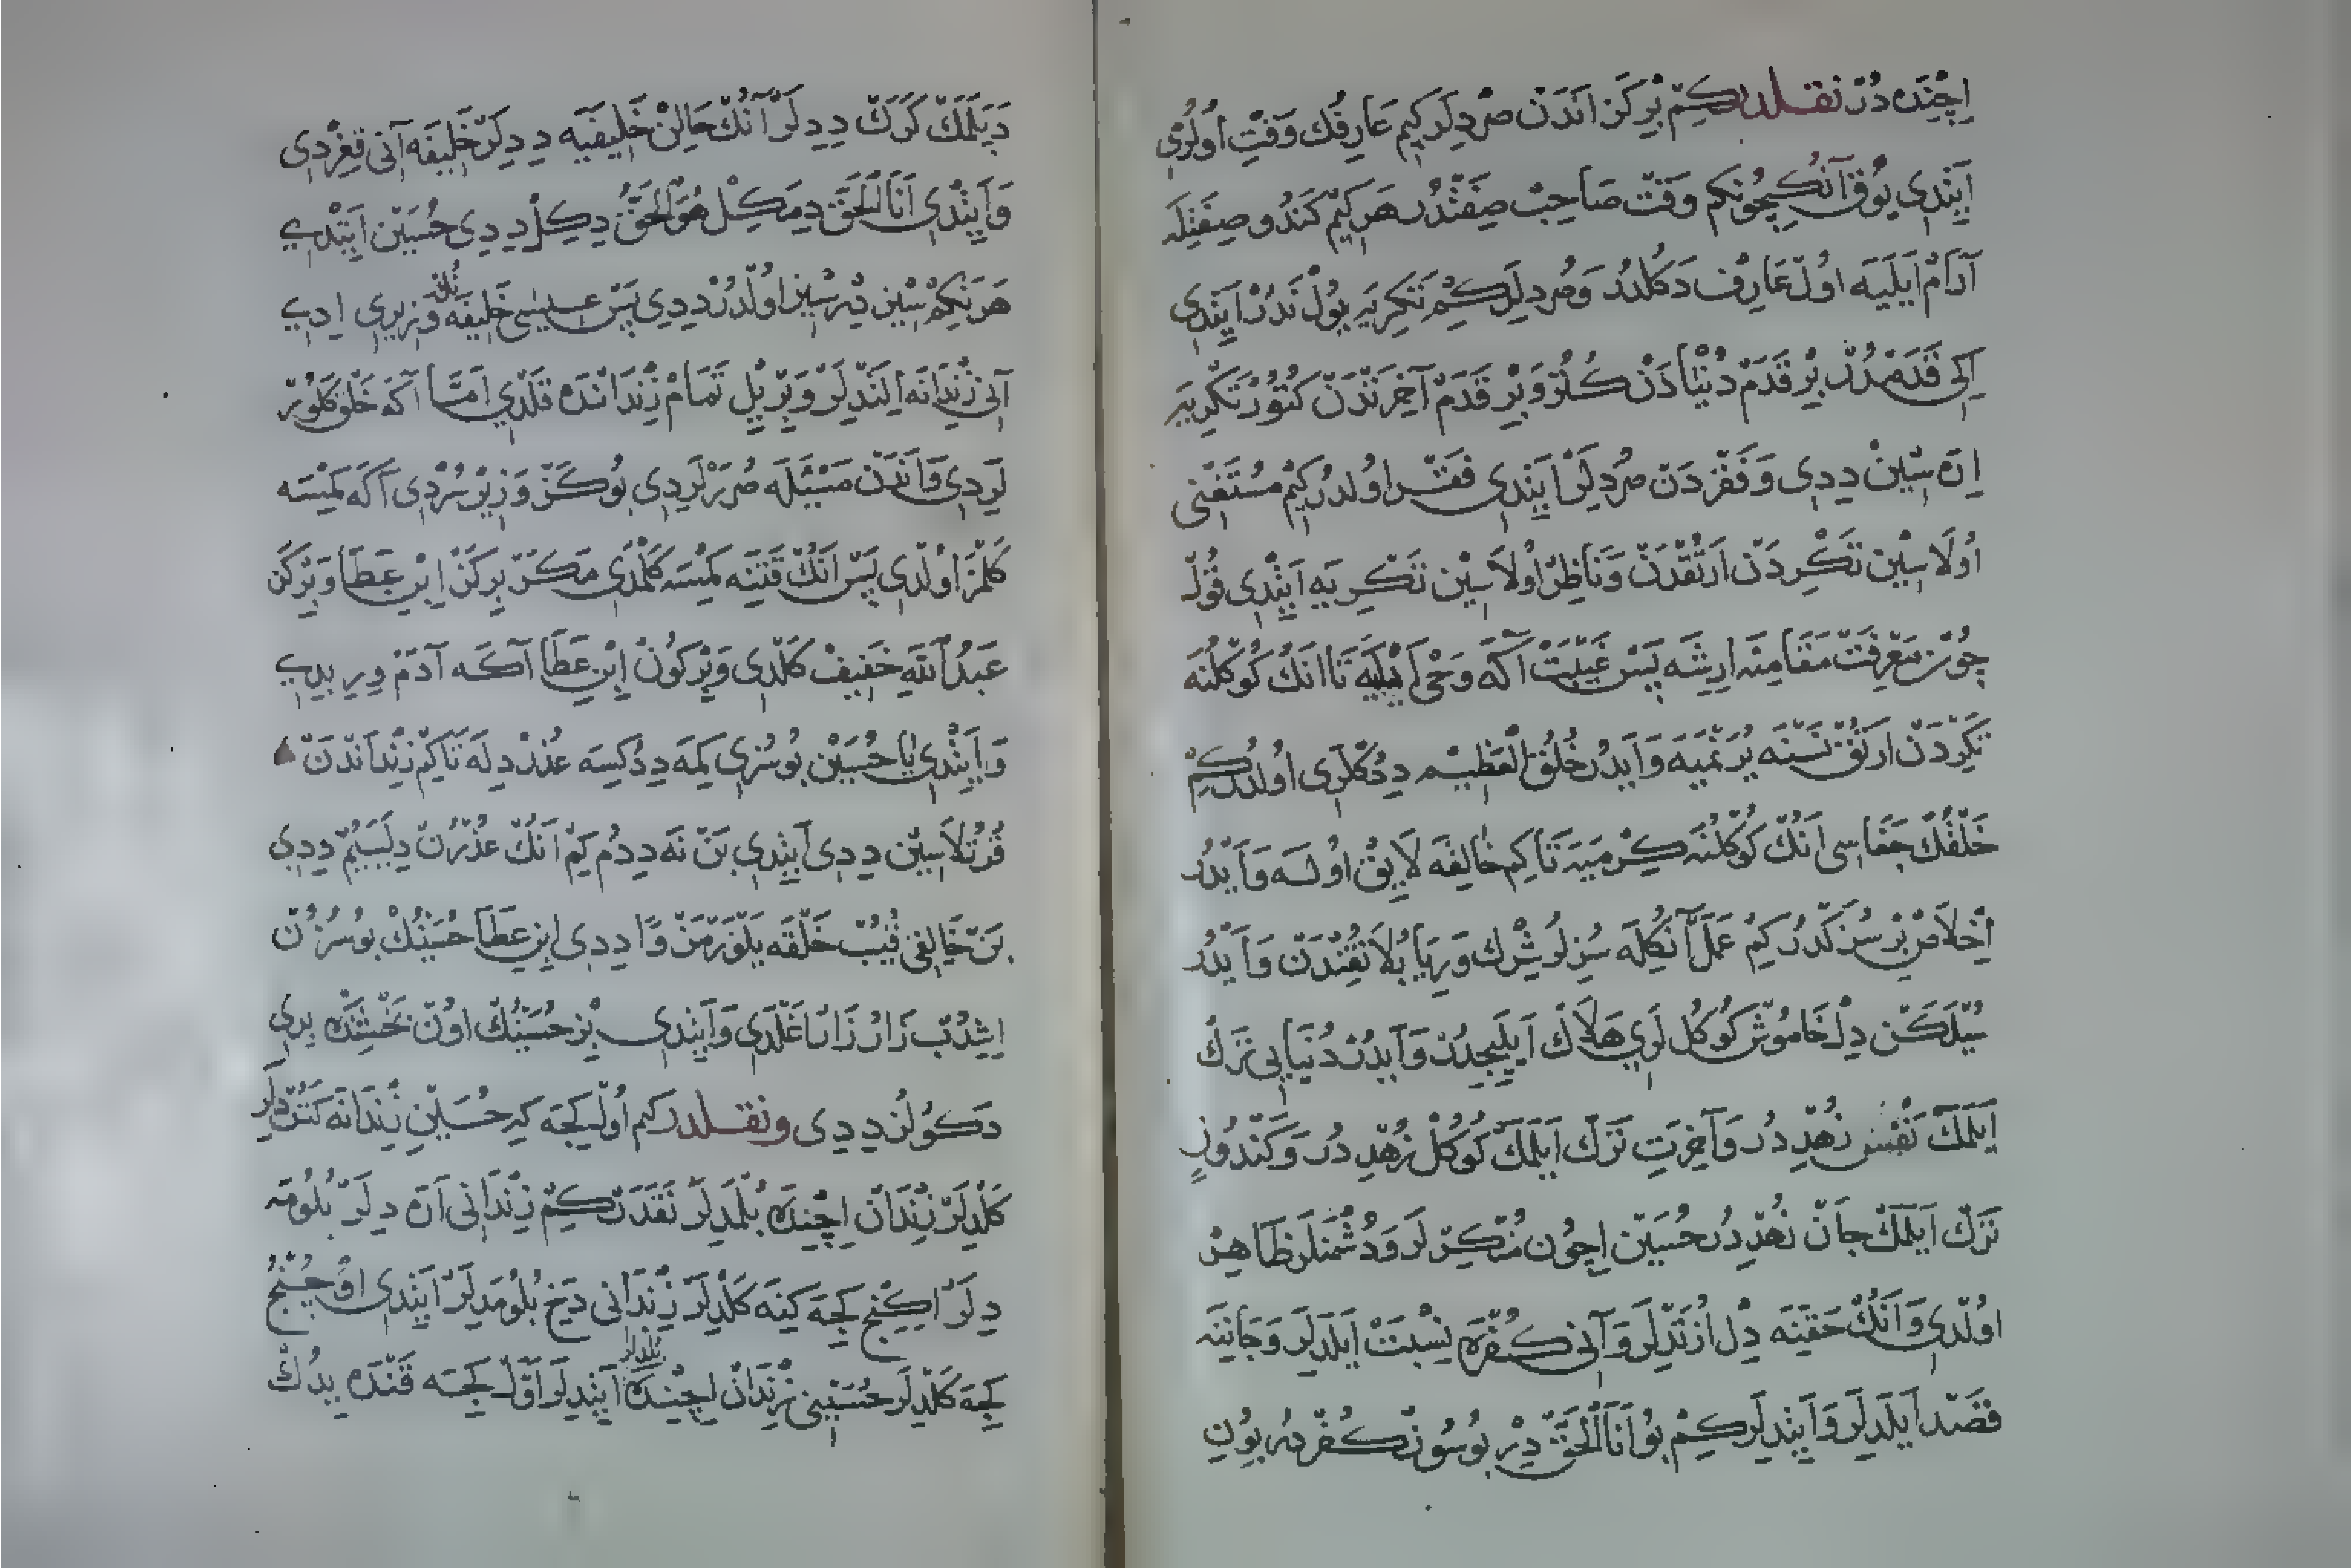 اِچِنْدَه دُرْ نقلدر كِمْ بِرْ كَزْ اَنْدَنْ صُرْدِلَرْ كِیمْ عَارِفُكْ وَقْتِ اُولُرْمِی
اَیِتْدِی یُوقْ آنُكِیچُونكِم وَقْتْ صَاحِبْ صِفَتْدُرْ هَرْ كِیمْ كَنْدُو صِفَتِلَه
آرَامْ اَیْلَیَه اُولْ عَارِفْ دَكُلدُرْ وَصُرْدِلَرْ كِمْ تَنْكرِیَه یُولْ نَدُرْ اَیِتْدِی
اِكِی قَدَمْدُرْ بِرْ قَدَمْ دُنْیَادَنْ كُتُرْ وَ بِرْ قَدَمْ آخِرَتْدَنْ كُتُوُرْ تَنْكرِیَه
اِرَه سِینْ دِدِی وَ فَقْرْدَنْ صُرْدِلَرْ اَیِتْدِی فَقْر اُولْدُرْ كِیمْ مُسْتَغْنِی
اُولَاسِینْ تَنْكرِدَنْ اَرْتُقْدَنْ وَنَاظِرْ اُولَاسِینْ تَنْكرِیَه اَیِتْدِی قُولْ
چُونْ مَعْرِفَتْ مَقَامِنَه اِرِشَه پَسْ غَیْبَتْ آكَه وَحْی اَیْلَیَه تَا اَنُكْ كُوكُلُنَه
تَكرِدَنْ اَرْتُقْ نَسْنَه یُرِتْمَیَه وَاَیْدُرْ خُلُقِ الْعَظِیمْ دِدُكْلَرِی اُولْدُرْ كِمْ
خَلْقُكْ جَفَاسِی اَنُكْ كُوكْلُنَه كِرْمَیَه تَا كِم خَالِقَه لَایِقْ اُولَه وَاَیْدُرْ
اِخْلَاصْ بِرْ سُزْكَجْدُرْ كِمْ عَمَلْ آنُكِلَه سُزِلُرْ شِرْك وَرِیَا بُلَانُقُنْدَنْ وَ اَیْدُرْ
سُیْلَكَنْ دِلْ خَامُوشْ كُوكُلْ لَرِی هَلَاكْ اَیْلَیِجِدُرْ وَ اَیْدُرْ دُنْیَایِی تَرْكْ
اَیْلَمَكْ نَفْسْ زُهْدِدُرْ وَ آخِرَتِ تَرْكْ اَیْلَمَكْ كُوكُلْ زُهْدِدُرْ وَ كَنْدُوزِنِ
تَرْكْ اَیْلَمَكْ جَانْ زُهْدِدُرْ حُسَیْنْ اِچُونْ مُنْكِرْلَرْ وَ دُشْمَنْلَرْ ظَاهِرْ
اُولْدِی وَ اَنُكْ حَقِنَه دِلْ اُزَتْدِلَرْ وَ آنِی كُفْرَه نِسْبَتْ اَیْلَدِلَرْ وَ جَانِنَه
قَصْد اَیْلَدِلَرْ وَ اَیِتْدِلَرْ كِمْ بُو اَنَا الْحَقْ دِرْ بُو سُوزْ كُفْردُر بُونِ
دَپَلَمَكْ كَرَكْ دِدِلَرْ آنُكْ حَالِنْ خَلِیفَیَه دِدِلَرْ خَلِیفَه آنِی قِغِرْدِی
وَ اَیِتْدِی اَنَا الْحَقْ دِمَكِلْ هُوَ الْحَقُّ دِكِلْ دِدِی حُسَیْنْ اَیِتْدِی
هَرْ نَكِمْ سِینْ دِیرْسِینْ اُولْدُرْ دِدِی پَسْ عیسی خَلِیفَه نُكْ وَزِیرِی اِدِی
آنِی زِنْدَانَه اِلَتْدِلَرْ وَ بِرْ یِلْ تَمَامْ زِنْدَانْدَه قَلْدِی اَمَّا آكَه خَلْق كَلُورْ
لَرْدِی وَ آنْدَنْ مَسْئَلَه صُرَرْلَرْدِی بُو كَزْ وَزِیرْ سُرْدِی آكَه كِمْسَه
كَلْمَزْ اُولْدِی پَسْ اَنُكْ قَتِنَه كِمْسَه كَلْمَدِی مَكَرْ بِرْ كَزْ اِبْنِ عَطَا وَ بِرْ كَزْ
عَبْدُ اللّٰهِ خَفِیفْ كَلْدِی وَ بِرْ كُونْ اِبْنِ عَطَا آكَه آدَمْ وِرِیبِدِی
وَ اَیِتْدِی یَا حُسَیْنْ بُو سُزِی كِمَه دِدُكِسَه عُذْرْ دِلَه تَا كِمْ زِنْدَانْدَنْ
قُرْتُلَاسِینْ دِدِی اَیِتْدِی بَنْ نَه دِدُم كِمْ اَنُكْ عُذْرُنْ دِلَیَیُمْ دِدِی
بَنْ خَالِقِی قُیُبْ خَلْقَه یَلْوَرَمَنْ وَا دِدِی اِبْنِ عَطَا حُسَیْنُكْ بُو سُزُنْ
اِشِدُبْ زَارْ زَارْ اَغْلَدِی وَ اَیِتْدِی بِزْ حُسَیْنُكْ اُونْ بَخْشِنْدَه بِرِی
دَكُولُزْ دِدِی ونقلدر كِم اُولْكِجَه كِه حُسَیْنِ زِنْدَانَه كَتُرْدِلَرْ
كَلْدِلَرْ زِنْدَانْ اِچِنْدَه بُلْمَدِلَرْ نَقَدَرْ كِمْ زِنْدَانِی آرَه دِلَرْ بُلُومَه
دِلَرْ اِكِنْجِ كِجَه كِنَه كَلْدِلَرْ زِنْدَانِی دَخِ بُلُومَدِلَرْ اَیِتْدِی اُوچُنْجُ
كِجَه كَلْدِلَرْ حُسَیْنِی زِنْدَانْ اِچِنْدَه بُلْدِلَرْ اَیِتْدِلَرْ اَوَّلْ كِجَه قَنْدَه یِدُكْ